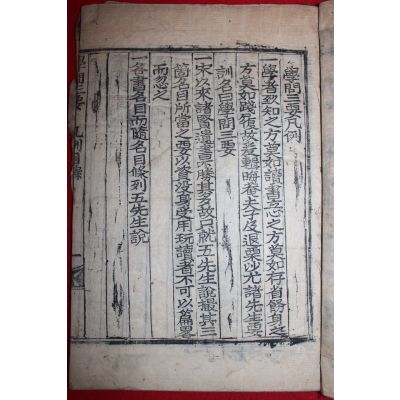 學問三要凡例
一學者致知之方莫如讀書立心之方莫如存省飭身之
方莫如踐履故爰輯晦菴夫子及退栗沙尤諸先生要
訓名曰學問三要
一宋以來諸賢遺書果不勝其多故只就五先生說撮其三
箇名目所當之要以資沒身受用玩讀者不可以篇畧
而忽之
一各書名目而隨名目條列五先生說
學問三要 凡例目錄